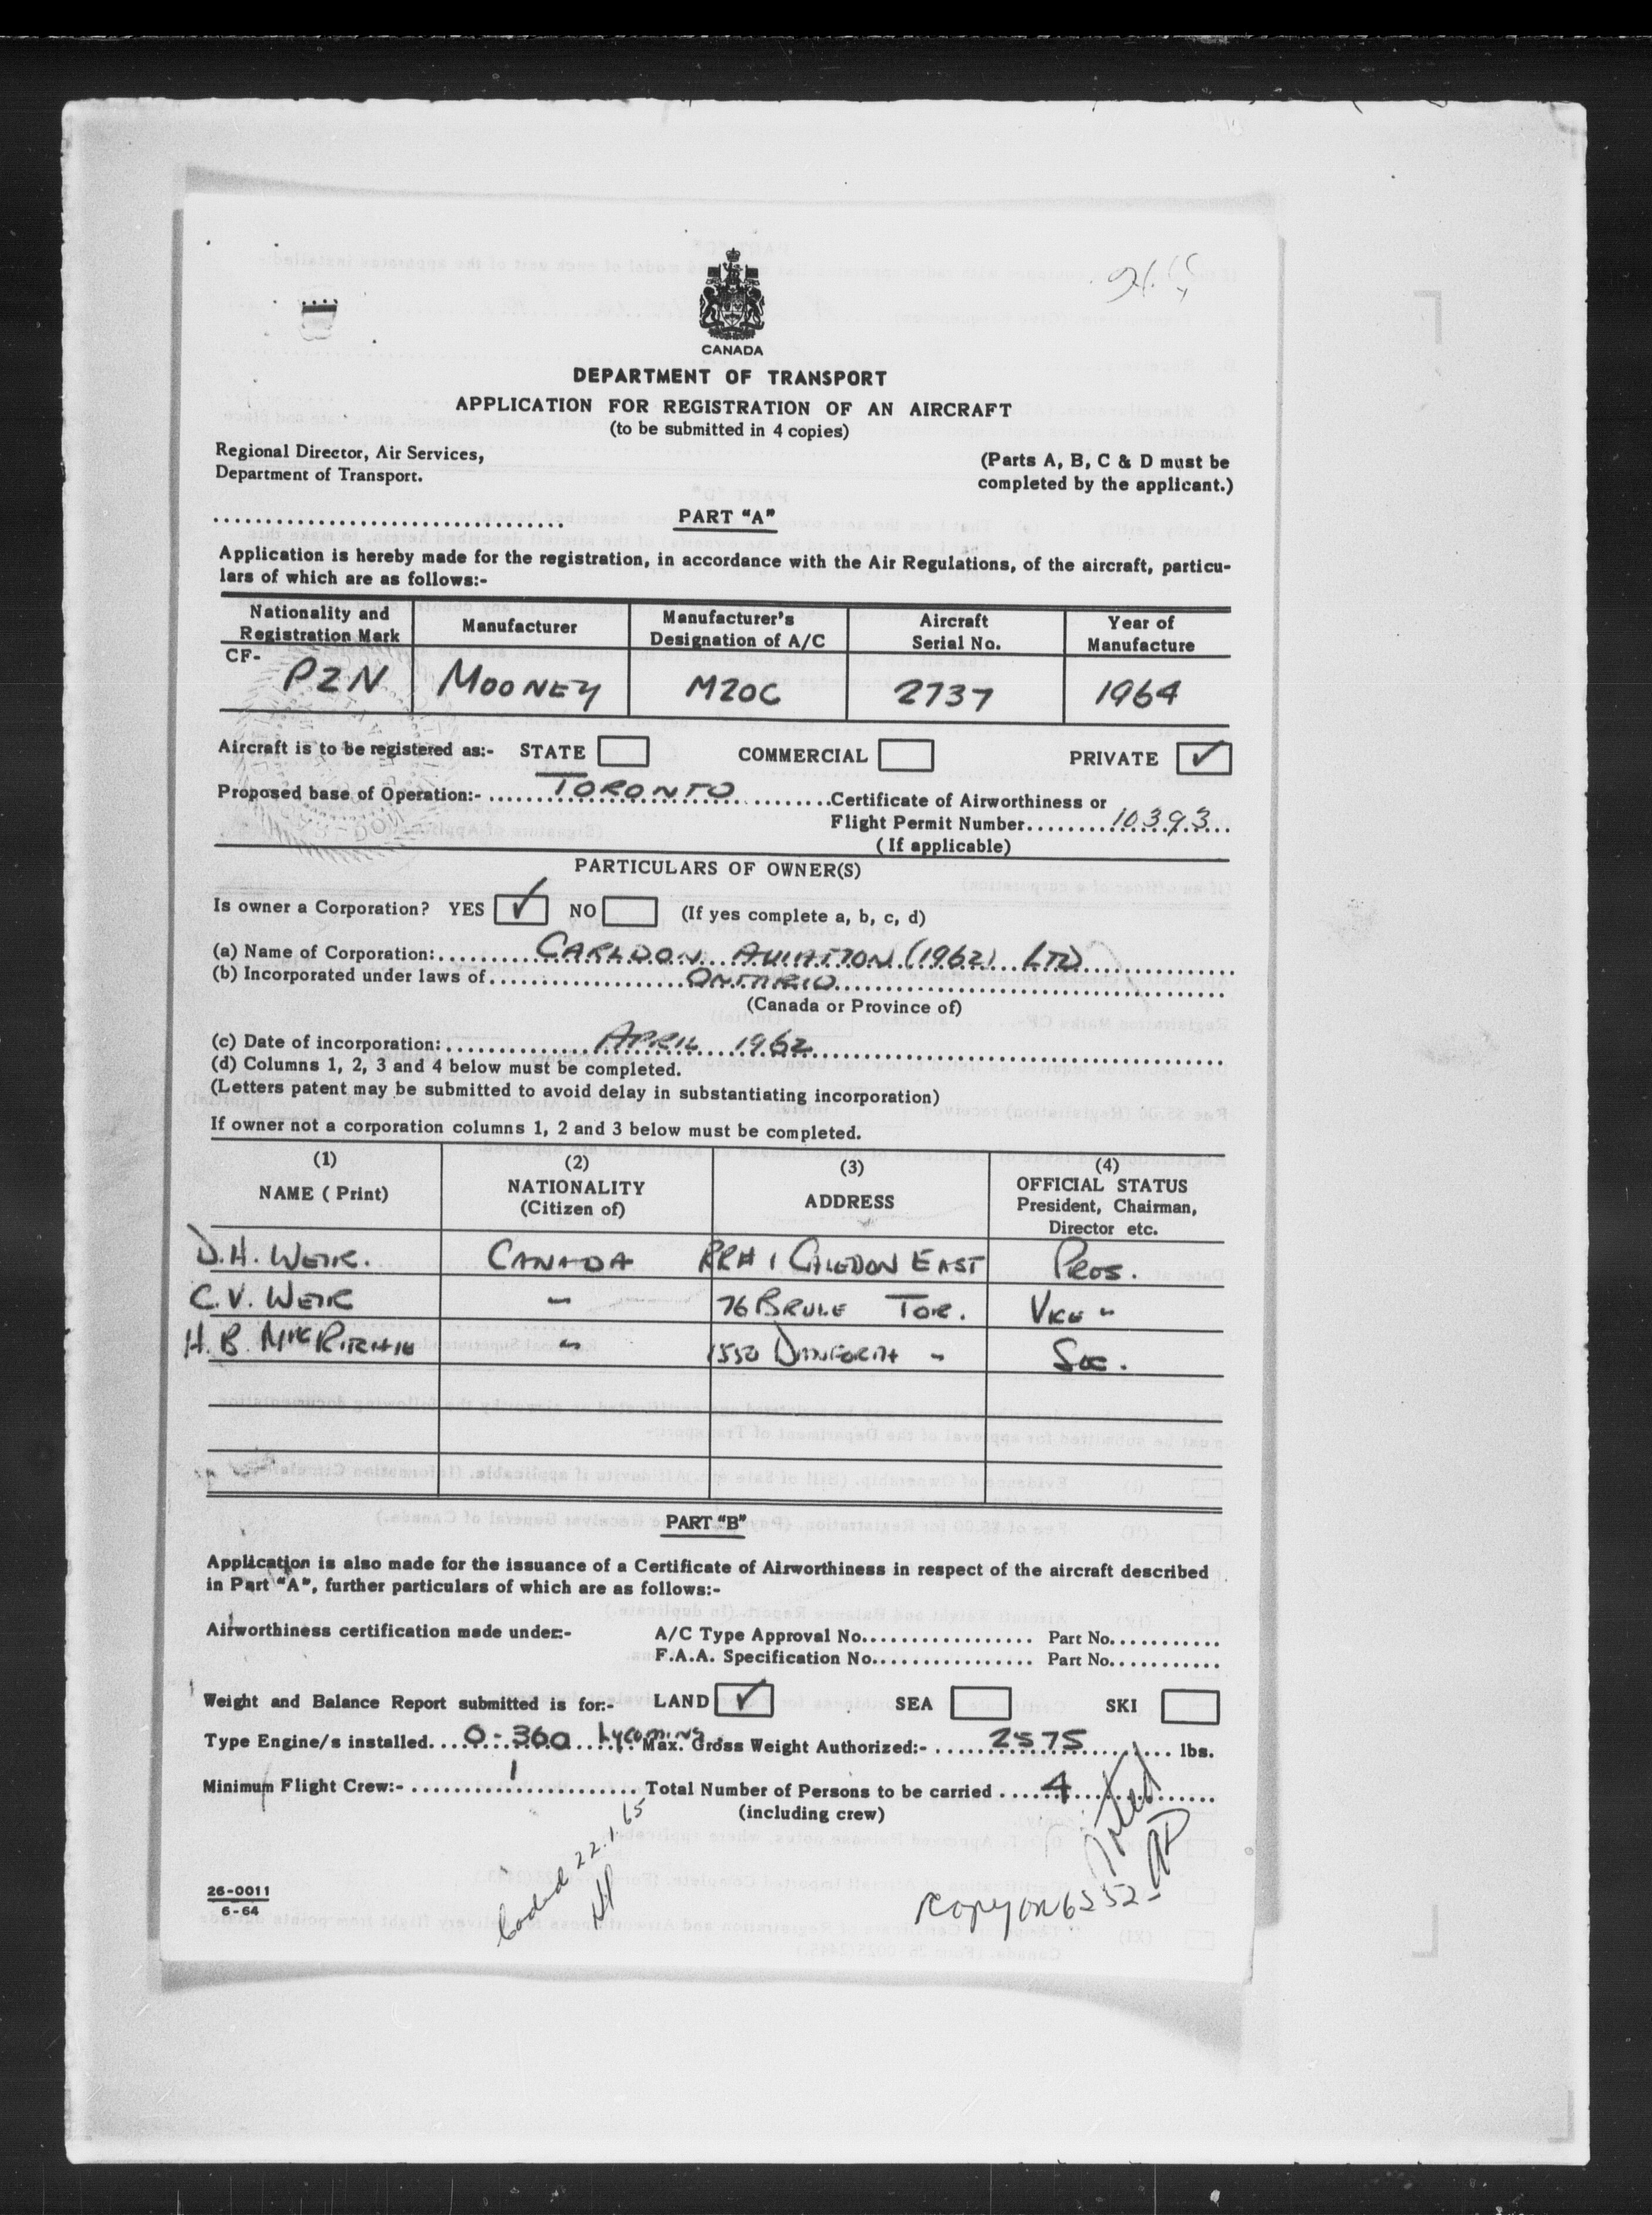 CANADA
DEPARTMENT OF TRANSPORT
APPLICATION FOR REGISTRATION OF AN AIRCRAFT
(to be submitted in 4 copies)
Regional Director, Air Services,
Department of Transport.
(Parts A, B, C & D must be
completed by the applicant.)
PART "A"
Application is hereby made for the registration, in accordance with the Air Regulations, of the aircraft, particu-
lars of which are as follows:-
Nationality and Registration Mark Manufacturer Manufacturer's Designation of A/C Aircraft Serial No. Year of Manufacture
CF- PZN MOONEY M20C 2737 1964
Aircraft is to be registered as:- STATE COMMERCIAL PRIVATE ✓
Proposed base of Operation:- TORONTO Certificate of Airworthiness or
Flight Permit Number 10393
(If applicable)
PARTICULARS OF OWNER(S)
Is owner a Corporation? YES ✓ NO (If yes complete a, b, c, d)
(a) Name of Corporation: CARLDON AVIATION (1962) LTD
(b) Incorporated under laws of ONTARIO
(Canada or Province of)
(c) Date of incorporation: APRIL 1962
(d) Columns 1, 2, 3 and 4 below must be completed.
(Letters patent may be submitted to avoid delay in substantiating incorporation)
If owner not a corporation columns 1, 2 and 3 below must be completed.
(1) (2) (3) (4)
NAME (Print) NATIONALITY (Citizen of) ADDRESS OFFICIAL STATUS President, Chairman, Director etc.
D.H. WEIR. CANADA RR# 1 CALEDON EAST PRES.
C.V. WEIR " 76 BRULE TOR. VICE "
H.B. 1550 DANFORTH " SEC.
PART "B"
Application is also made for the issuance of a Certificate of Airworthiness in respect of the aircraft described
in Part "A", further particulars of which are as follows:-
Airworthiness certification made under:- A/C Type Approval No. Part No.
F.A.A. Specification No. Part No.
Weight and Balance Report submitted is for:- LAND ✓ SEA SKI
Type Engine/s installed. O-360 Lycoming Max. Gross Weight Authorized:- 2575 lbs.
Minimum Flight Crew:- 1 Total Number of Persons to be carried 4
(including crew)
Coded 22.1.65
26-0011
6-64